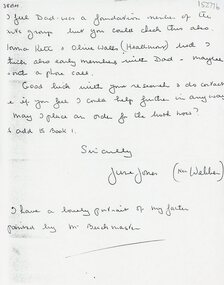 I feel Dad was a foundation member of the
group but you could check this also.
Olive Walker (Heathmont) but I
think also early members with Dad - maybe
with a phone call.
Good luck with your research & do contact
if you feel I could help further in any way
may I place an order for the last two?
add to Book 1.
Sincerely
June Jones (nee Webber)
I have a lovely portrait of my father
painted by Mr Buckmaster